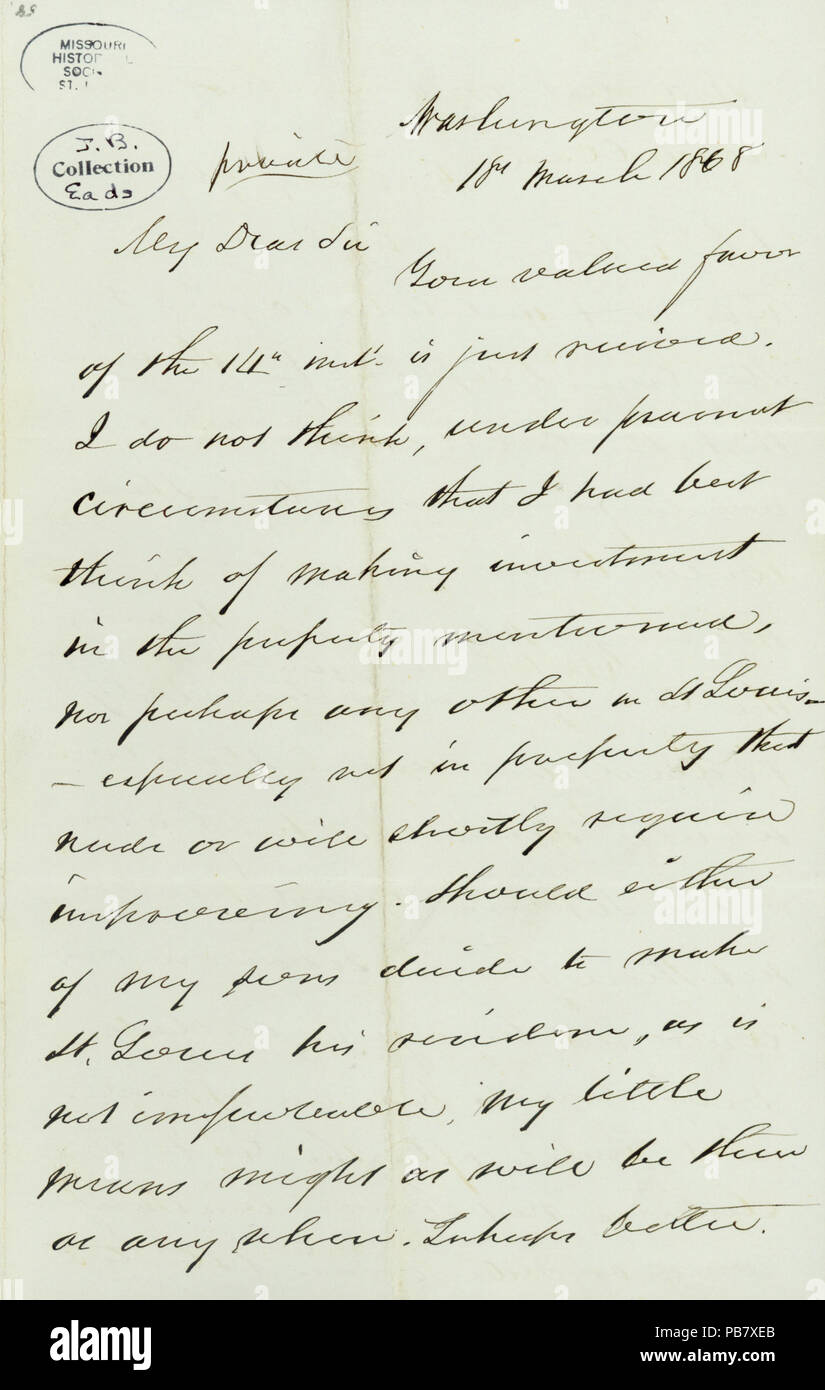 28
MISSOURI
HISTORICAL
SOCI
ST. L
J. B.
Collection
Eads
private
Washington
18th March 1868
My Dear Sir
Your valued favor
of the 14th inst. is just received.
I do not think, under present
circumstances that I had best
think of making investment
in the property mentioned,
nor perhaps any other in St Louis—
— especially not in property that
needs or will shortly require
improveing. Should either
of my sons decide to make
St. Louis his residence, as is
not improbable, my little
means might as well be there
as any where. Perhaps better.
alamy
alamy
alamy
alamy
Image ID: PB7XEB
www.alamy.com